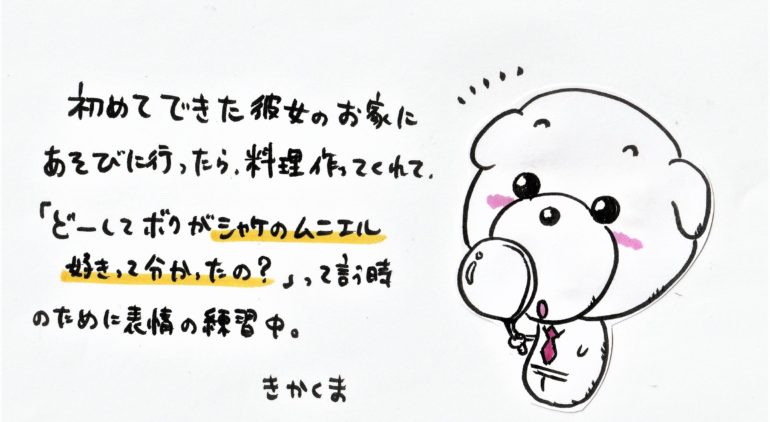 初めてできた彼女のお家に
あそびに行ったら、料理作ってくれて、
「どーしてボクがシャケのムニエル
好きって分かったの?」って言う時
のために表情の練習中。
きかくま